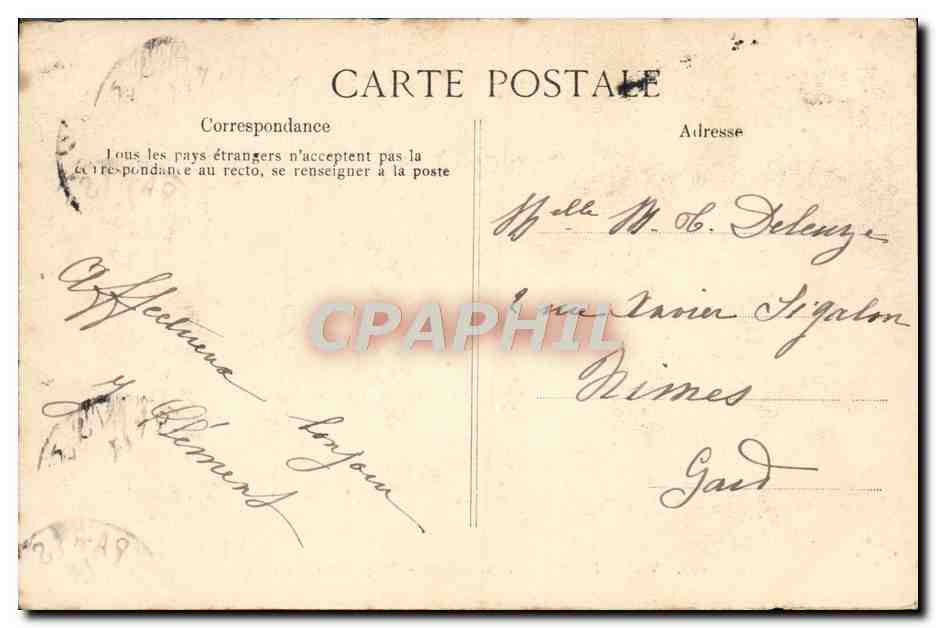 CARTE POSTALE
Correspondance
Tous les pays étrangers n'acceptent pas la
correspondance au recto, se renseigner à la poste
Adresse
Affectueux
bonjour
J. Clément
Melle M. T. Deleuze
2 rue Xavier Sigalon
Nimes
Gard
CPAPHIL